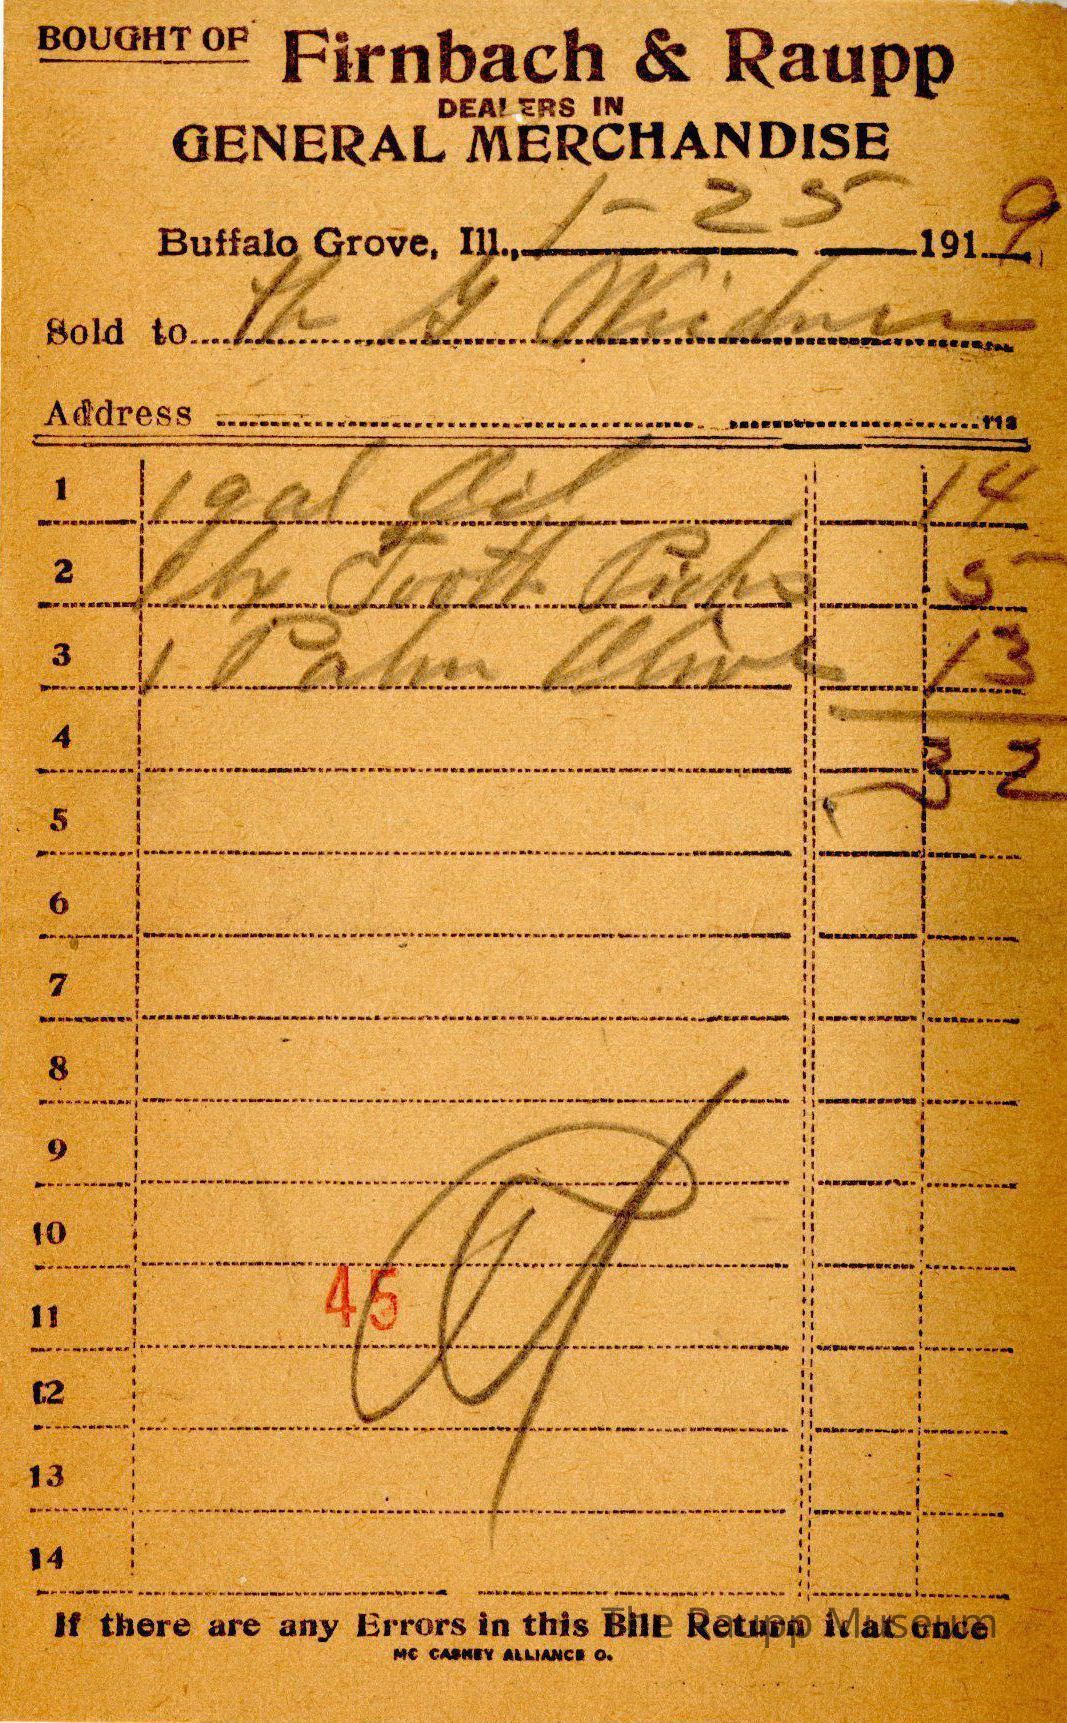 BOUGHT OF Firnbach & Raupp
DEALERS IN
GENERAL MERCHANDISE
Buffalo Grove, Ill., 1-25 1919
Sold to G Weidner
Address
1 1 gal Oil 14
2 1 bx Tooth Picks 5
3 1 Palm Olive 13
4 32
5
6
7
8
9
10
11 45
12
13
14
If there are any Errors in this Bill Return it at once
The Raupp Museum
MC CASKEY ALLIANCE O.